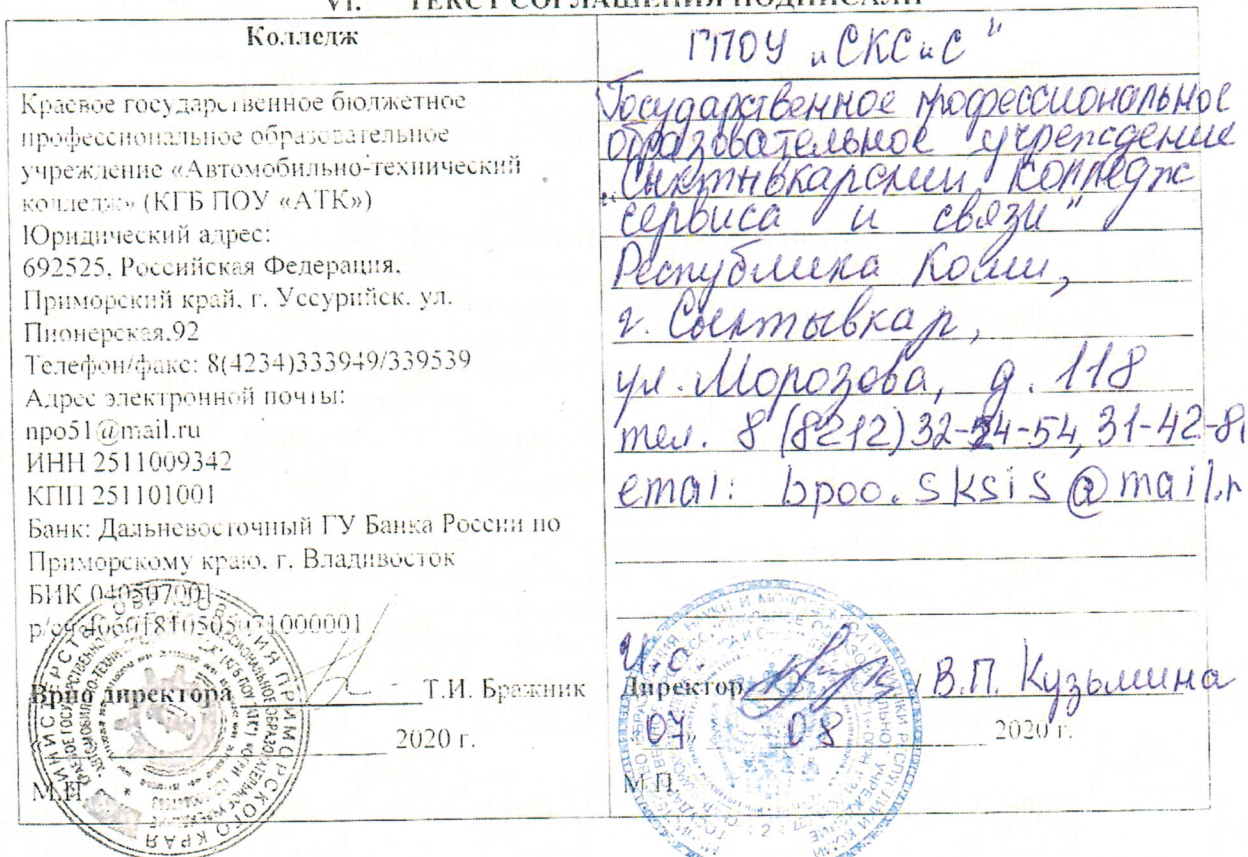 VI. ТЕКСТ СОГЛАШЕНИЯ ПОДПИСАЛИ
Колледж
Краевое государственное бюджетное
профессиональное образовательное
учреждение «Автомобильно-технический
колледж» (КГБ ПОУ «АТК»)
Юридический адрес:
692525, Российская Федерация,
Приморский край, г. Уссурийск, ул.
Пионерская,92
Телефон/факс: 8(4234)333949/339539
Адрес электронной почты:
npo51@mail.ru
ИНН 2511009342
КПП 251101001
Банк: Дальневосточный ГУ Банка России по
Приморскому краю, г. Владивосток
БИК 040507001
р/сч 40601810505071000001
Врио директора Т.И. Бражник
2020 г.
М.П.
ГПОУ „СКСиС"
Государственное профессиональное
образовательное учреждение
„Сыктывкарский колледж
сервиса и связи"
Республика Коми,
г. Сыктывкар,
ул. Морозова, д. 118
тел. 8 (8212) 32-24-54, 31-42-8
emai: bpoo.sksis@mail.r
И.о.
Директор / В.П. Кузьмина
07 08 2020 г.
М.П.